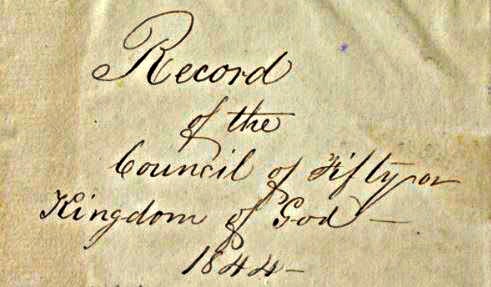 Record
of the
Council of Fifty or
Kingdom of God—
1844—